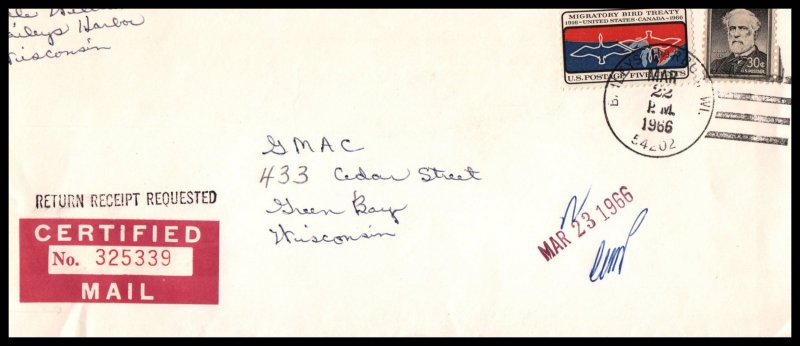 Baileys Harbor
Wisconsin
MIGRATORY BIRD TREATY
1916 • UNITED STATES • CANADA • 1966
U.S. POSTAGE FIVE CENTS
30¢
U.S. POSTAGE
MAR
22
P.M.
1966
54202
WI.
GMAC
433 Cedar Street
Green Bay
Wisconsin
RETURN RECEIPT REQUESTED
CERTIFIED
No. 325339
MAIL
MAR 23 1966